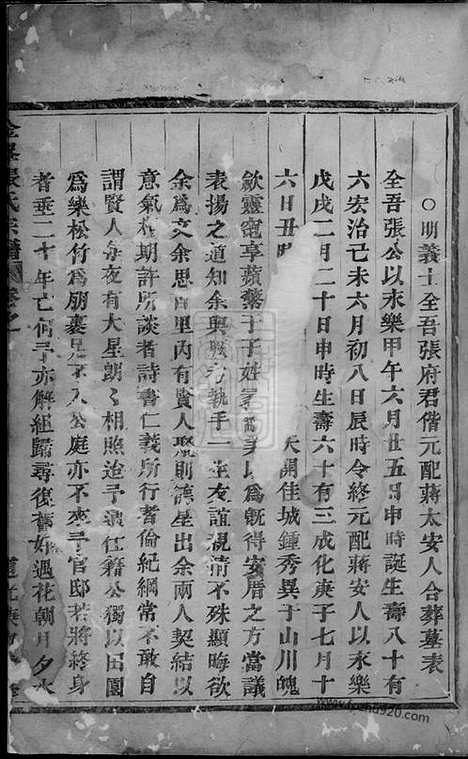 ○明義士全吾張府君偕元配蔣太安人合葬墓表
全吾張公以永樂甲午六月廿五日申時誕生壽八十有
六宏治己未六月初八日辰時令終元配蔣安人以永樂
戊戌二月二十日申時生壽六十有三成化庚子七月十
六日丑時 天開佳城鍾秀異于山川魄
歛靈窀享蘋蘩于子姓 以爲旣得安厝之方當議
表揚之道知余與 執手 友誼視情不殊顯晦欲
余爲文余思 里內有賢人聚則德星出余兩人契結以
意氣相期許所談者詩書仁義所行者倫紀綱常不敢自
謂賢人每夜有大星朗々相照迨予 仕籍公獨以田園
爲樂松竹爲朋裹足不入公庭亦不來予官邸若將終身
者垂二十年亡何予亦解組歸尋復舊好過花朝月夕水
張氏宗譜 卷之
www.jiapu920.com